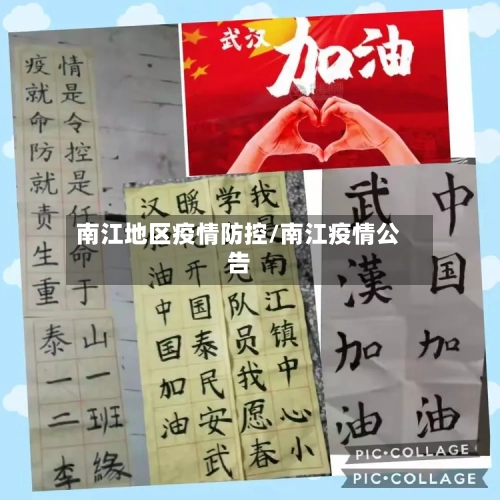 疫情
就是
命令
防控
就是
责任
生命
重于
泰山
一一
二班
李緣
武汉
加油
南江地区疫情防控/南江疫情公
告
我是南江镇中心小
学队员我愿春
暖开国泰民安武
汉加油中国加油
中国加油
武漢加油
PIC•COLLAGE
PIC•COLLAGE